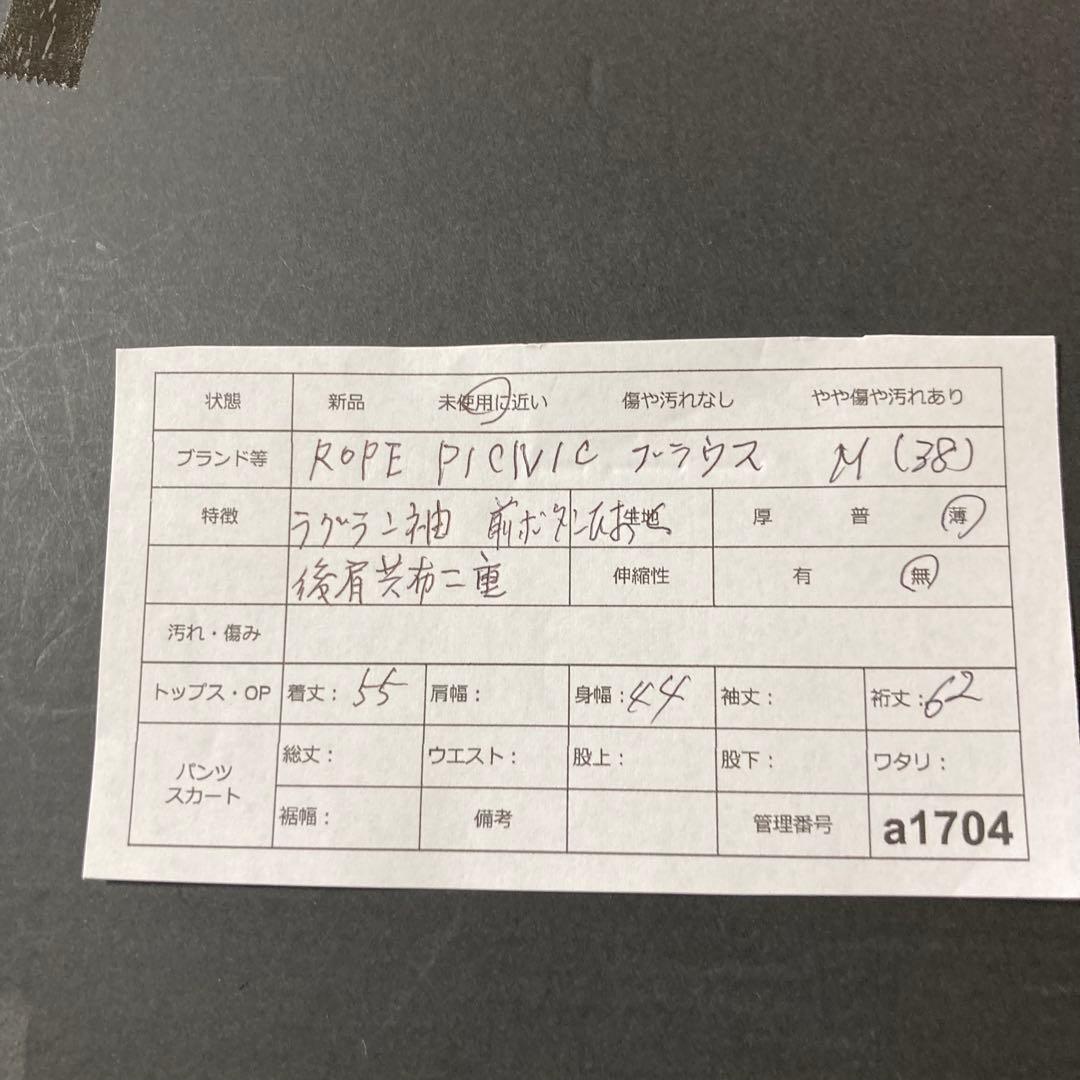 状態 新品 未使用に近い 傷や汚れなし やや傷や汚れあり
ブランド等 ROPE PICNIC ブラウス M (38)
特徴 ラグラン袖 前ボタン 生地 厚 普 薄
後肩共布二重 伸縮性 有 無
汚れ・傷み
トップス・OP 着丈: 55 肩幅: 身幅: 44 袖丈: 裄丈: 62
パンツ スカート 総丈: ウエスト: 股上: 股下: ワタリ:
裾幅: 備考 管理番号 a1704